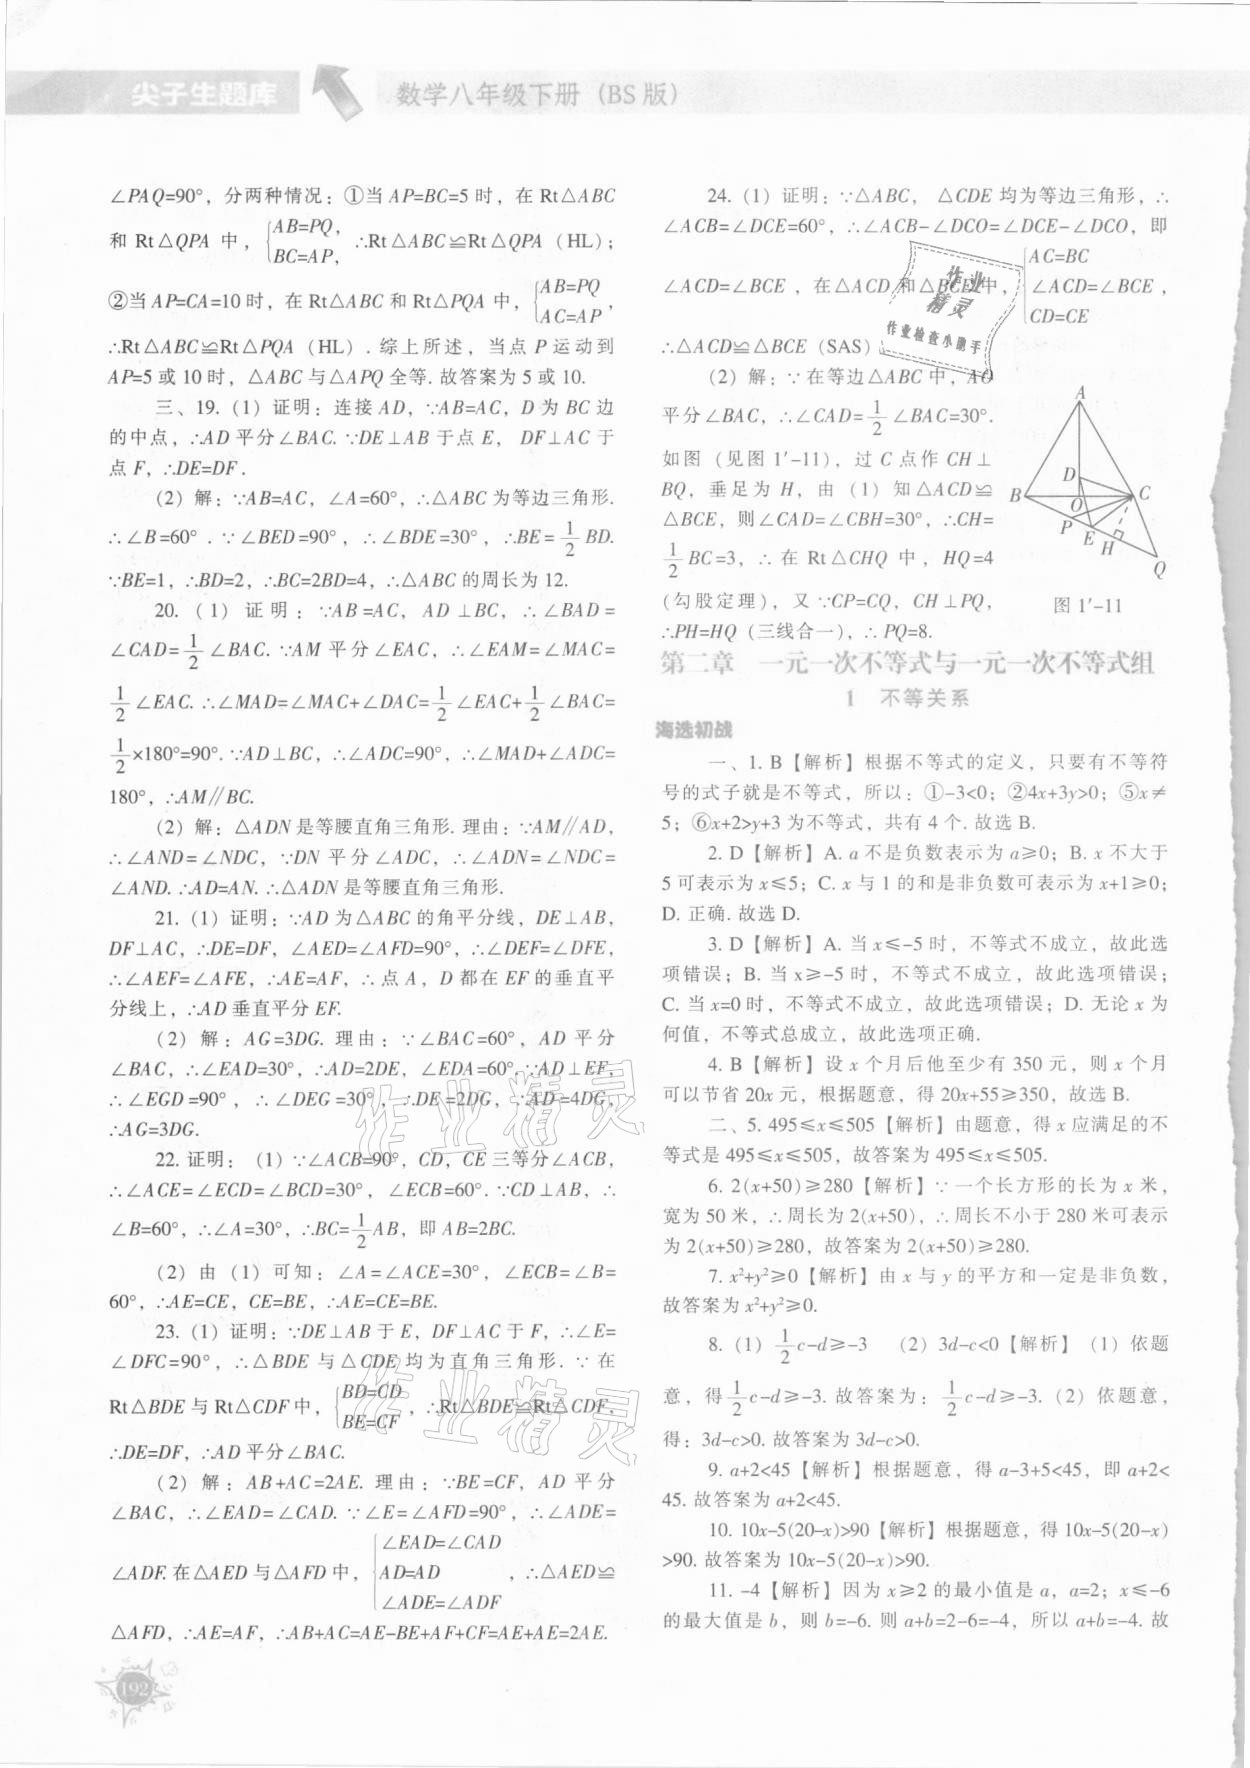 尖子生题库
数学八年级下册（BS 版）
∠PAQ=90°，分两种情况：①当 AP=BC=5 时，在 Rt△ABC
和 Rt△QPA 中，{AB=PQ, BC=AP, ∴Rt△ABC≌Rt△QPA（HL）；
②当 AP=CA=10 时，在 Rt△ABC 和 Rt△PQA 中，{AB=PQ AC=AP，
∴Rt△ABC≌Rt△PQA（HL）. 综上所述，当点 P 运动到
AP=5 或 10 时，△ABC 与△APQ 全等. 故答案为 5 或 10.
三、19. (1) 证明：连接 AD，∵AB=AC，D 为 BC 边
的中点，∴AD 平分∠BAC. ∵DE⊥AB 于点 E，DF⊥AC 于
点 F，∴DE=DF .
(2) 解：∵AB=AC，∠A=60°，∴△ABC 为等边三角形.
∴∠B=60° . ∵∠BED=90°，∴∠BDE=30°，∴BE=1/2 BD.
∵BE=1，∴BD=2，∴BC=2BD=4，∴△ABC 的周长为 12.
20. (1) 证明：∵AB=AC，AD⊥BC，∴∠BAD=
∠CAD=1/2∠BAC. ∵AM 平分∠EAC，∴∠EAM=∠MAC=
1/2∠EAC. ∴∠MAD=∠MAC+∠DAC=1/2∠EAC+1/2∠BAC=
1/2×180°=90°. ∵AD⊥BC，∴∠ADC=90°，∴∠MAD+∠ADC=
180°，∴AM∥BC.
(2) 解：△ADN 是等腰直角三角形. 理由：∵AM∥AD，
∴∠AND=∠NDC，∵DN 平分∠ADC，∴∠ADN=∠NDC=
∠AND. ∴AD=AN. ∴△ADN 是等腰直角三角形.
21. (1) 证明：∵AD 为△ABC 的角平分线，DE⊥AB，
DF⊥AC，∴DE=DF，∠AED=∠AFD=90°，∴∠DEF=∠DFE，
∴∠AEF=∠AFE，∴AE=AF，∴点 A，D 都在 EF 的垂直平
分线上，∴AD 垂直平分 EF.
(2) 解：AG=3DG. 理由：∵∠BAC=60°，AD 平分
∠BAC，∴∠EAD=30°，∴AD=2DE，∠EDA=60°. ∵AD⊥EF，
∴∠EGD=90°，∴∠DEG=30°，∴DE=2DG，∴AD=4DG，
∴AG=3DG.
22. 证明：(1) ∵∠ACB=90°，CD，CE 三等分∠ACB，
∴∠ACE=∠ECD=∠BCD=30°，∠ECB=60°. ∵CD⊥AB，∴
∠B=60°，∴∠A=30°，∴BC=1/2AB，即 AB=2BC.
(2) 由 (1) 可知：∠A=∠ACE=30°，∠ECB=∠B=
60°，∴AE=CE，CE=BE，∴AE=CE=BE.
23. (1) 证明：∵DE⊥AB 于 E，DF⊥AC 于 F，∴∠E=
∠DFC=90°，∴△BDE 与△CDE 均为直角三角形. ∵在
Rt△BDE 与 Rt△CDF 中，{BD=CD BE=CF，∴Rt△BDE≌Rt△CDF，
∴DE=DF，∴AD 平分∠BAC.
(2) 解：AB+AC=2AE. 理由：∵BE=CF，AD 平分
∠BAC，∴∠EAD=∠CAD. ∵∠E=∠AFD=90°，∴∠ADE=
∠ADF. 在△AED 与△AFD 中，{∠EAD=∠CAD AD=AD ∠ADE=∠ADF，∴△AED≌
△AFD，∴AE=AF，∴AB+AC=AE-BE+AF+CF=AE+AE=2AE.
192
24. (1) 证明：∵△ABC，△CDE 均为等边三角形，∴
∠ACB=∠DCE=60°，∴∠ACB-∠DCO=∠DCE-∠DCO，即
∠ACD=∠BCE，在△ACD 和△BCE 中，{AC=BC ∠ACD=∠BCE， CD=CE
∴△ACD≌△BCE (SAS)
(2) 解：∵在等边△ABC 中，AO
平分∠BAC，∴∠CAD=1/2∠BAC=30°.
如图（见图 1′-11），过 C 点作 CH⊥
BQ，垂足为 H，由 (1) 知△ACD≌
△BCE，则∠CAD=∠CBH=30°，∴CH=
1/2BC=3，∴在 Rt△CHQ 中，HQ=4
(勾股定理)，又∵CP=CQ，CH⊥PQ，
∴PH=HQ（三线合一），∴PQ=8.
A
D
B
O
C
P
E
H
Q
图 1′-11
作业
精灵
作业检查小助手
第二章　一元一次不等式与一元一次不等式组
1　不等关系
海选初战
一、1. B【解析】根据不等式的定义，只要有不等符
号的式子就是不等式，所以：①-3<0；②4x+3y>0；⑤x≠
5；⑥x+2>y+3 为不等式，共有 4 个. 故选 B.
2. D【解析】A. a 不是负数表示为 a≥0；B. x 不大于
5 可表示为 x≤5；C. x 与 1 的和是非负数可表示为 x+1≥0；
D. 正确. 故选 D.
3. D【解析】A. 当 x≤-5 时，不等式不成立，故此选
项错误；B. 当 x≥-5 时，不等式不成立，故此选项错误；
C. 当 x=0 时，不等式不成立，故此选项错误；D. 无论 x 为
何值，不等式总成立，故此选项正确.
4. B【解析】设 x 个月后他至少有 350 元，则 x 个月
可以节省 20x 元，根据题意，得 20x+55≥350，故选 B.
二、5. 495≤x≤505【解析】由题意，得 x 应满足的不
等式是 495≤x≤505，故答案为 495≤x≤505.
6. 2(x+50)≥280【解析】∵一个长方形的长为 x 米，
宽为 50 米，∴周长为 2(x+50)，∴周长不小于 280 米可表示
为 2(x+50)≥280，故答案为 2(x+50)≥280.
7. x²+y²≥0【解析】由 x 与 y 的平方和一定是非负数，
故答案为 x²+y²≥0.
8. (1) 1/2c-d≥-3　(2) 3d-c<0【解析】(1) 依题
意，得1/2c-d≥-3. 故答案为：1/2c-d≥-3. (2) 依题意，
得：3d-c>0. 故答案为 3d-c>0.
9. a+2<45【解析】根据题意，得 a-3+5<45，即 a+2<
45. 故答案为 a+2<45.
10. 10x-5(20-x)>90【解析】根据题意，得 10x-5(20-x)
>90. 故答案为 10x-5(20-x)>90.
11. -4【解析】因为 x≥2 的最小值是 a，a=2；x≤-6
的最大值是 b，则 b=-6. 则 a+b=2-6=-4，所以 a+b=-4. 故
作业精灵
作业精灵